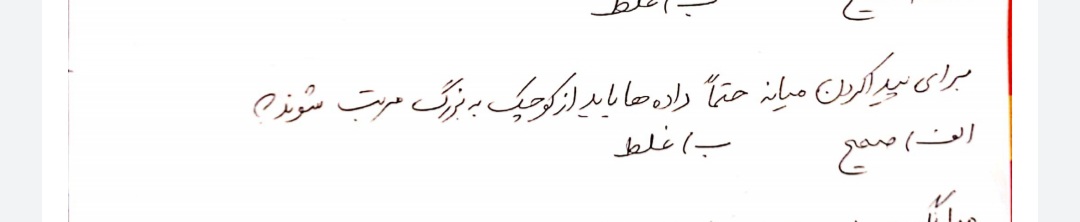 برای پیدا کردن میانه حتماً داده ها باید از کوچک به بزرگ مرتب شوند؟
الف) صحیح ب) غلط